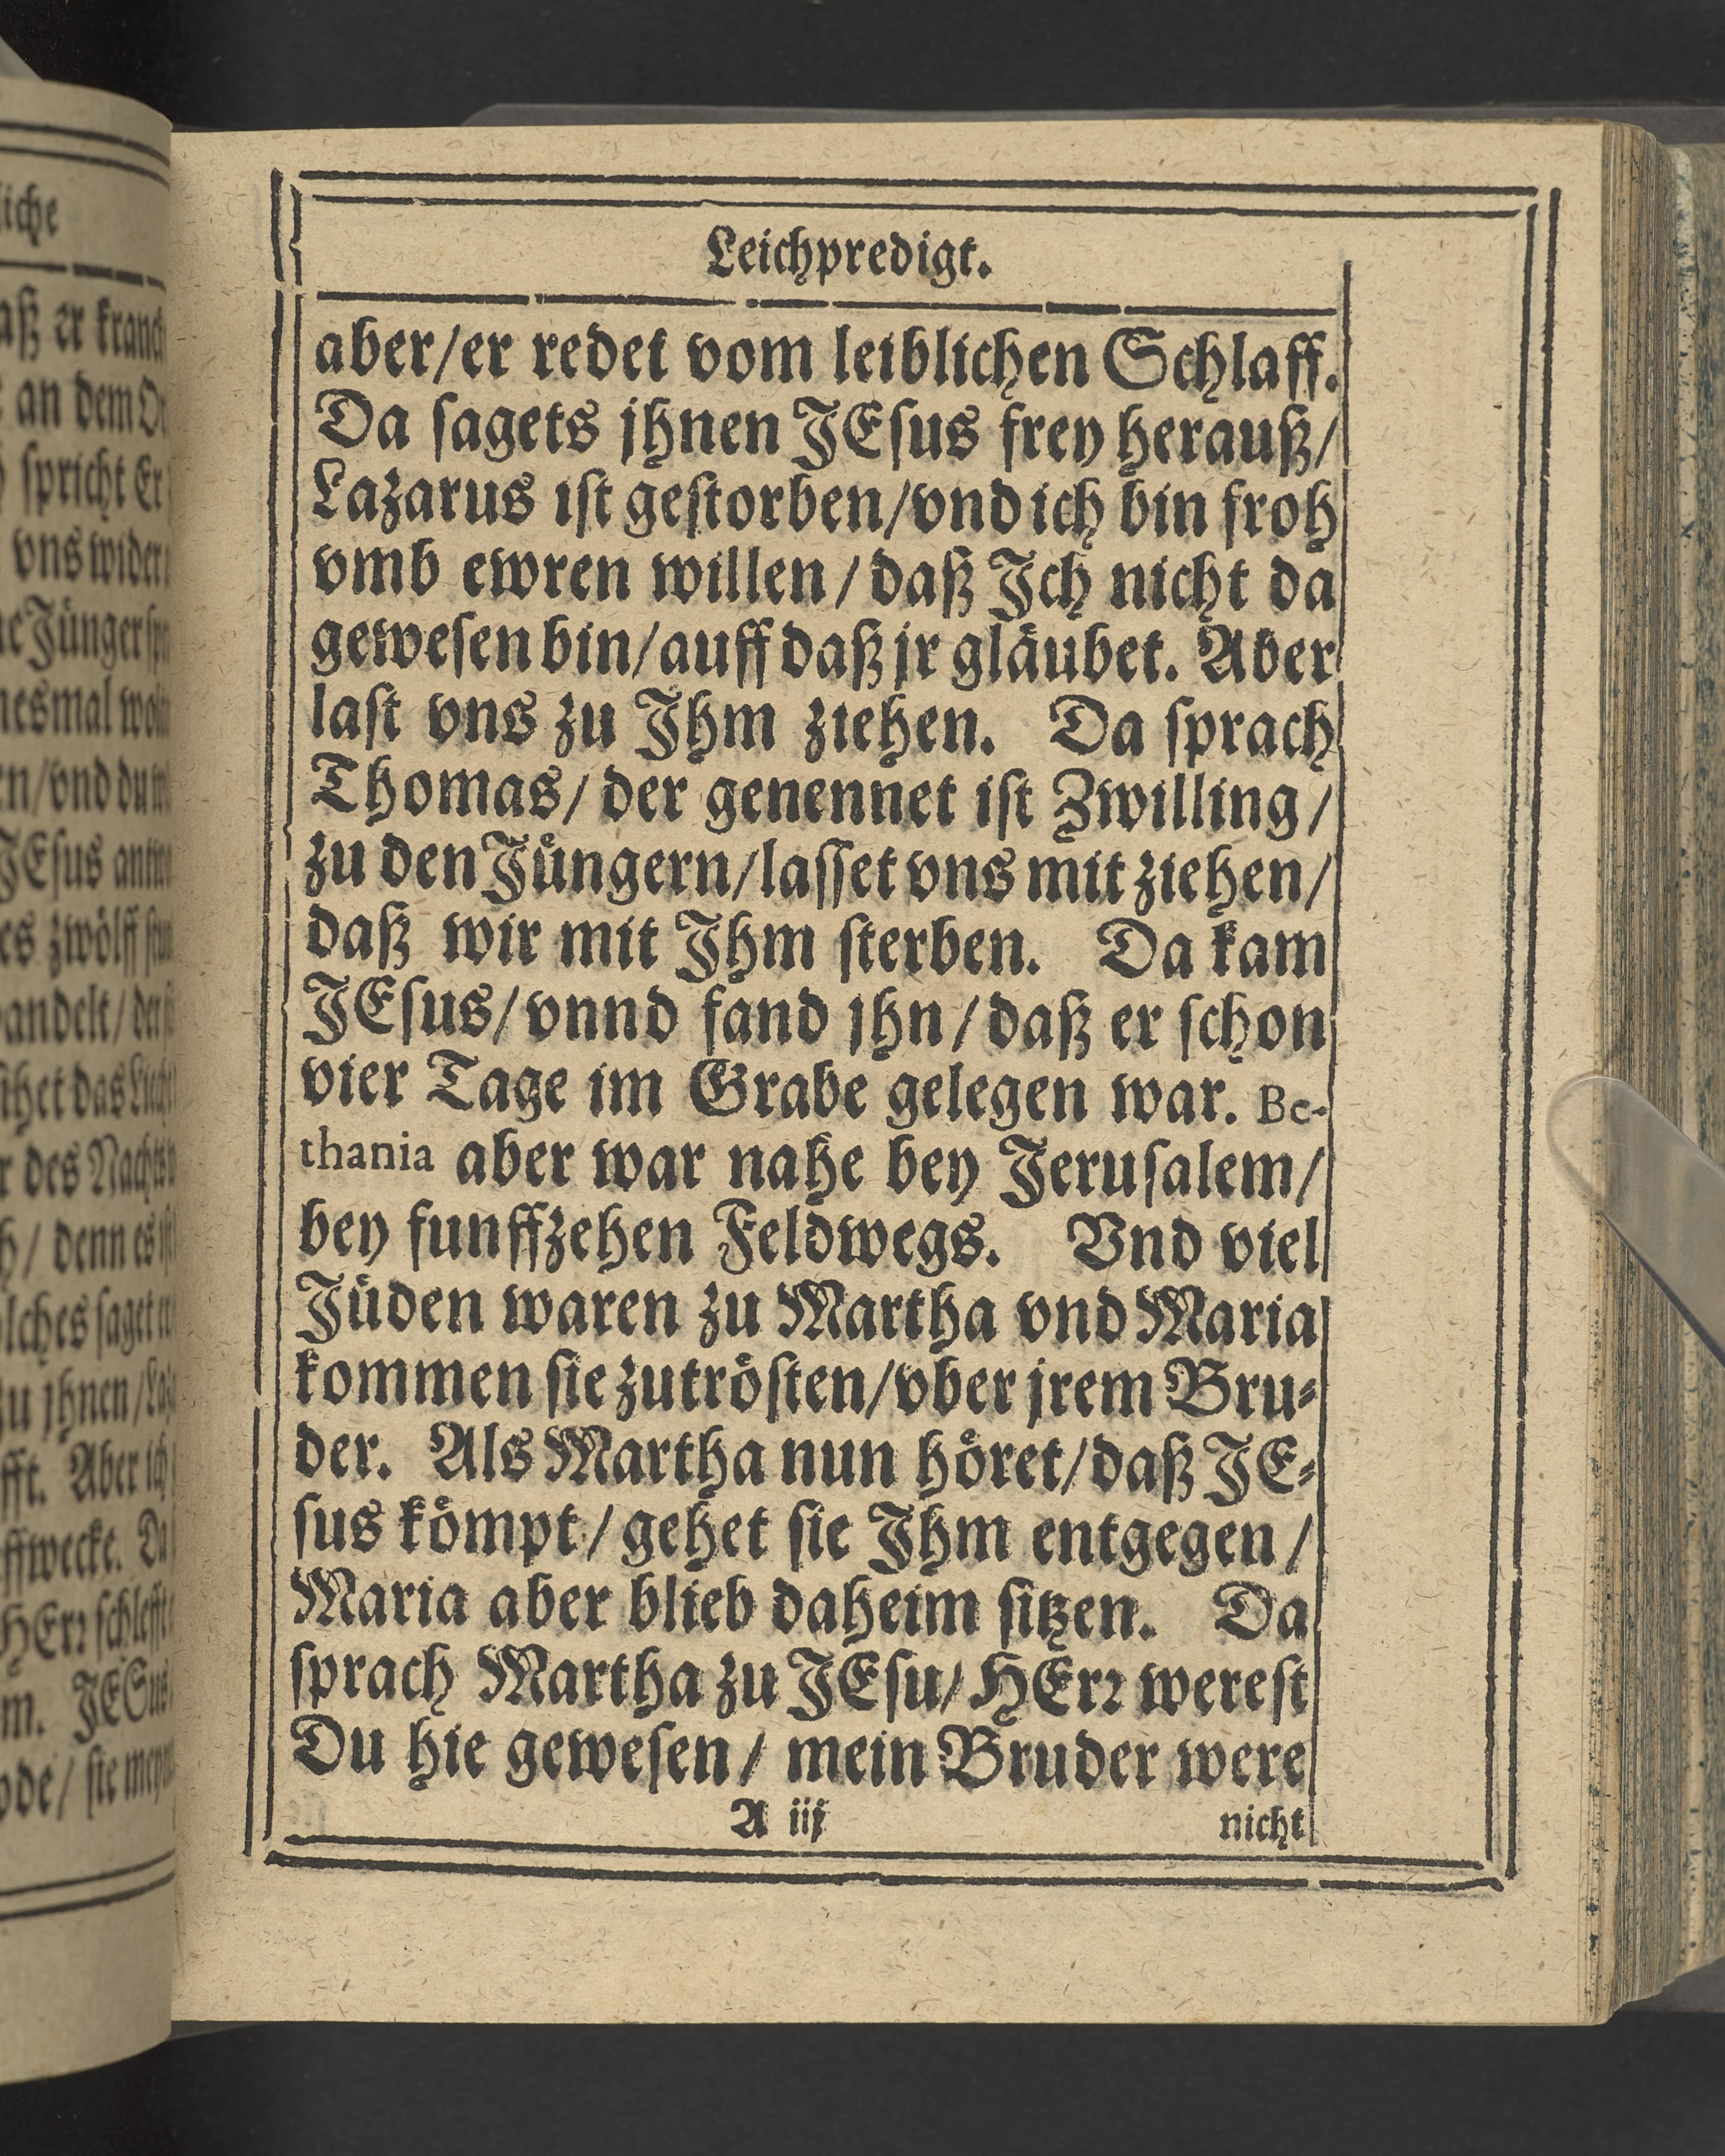 Leichpredigt.
aber/er redet vom leiblichen Schlaff.
Da sagets jhnen JEsus frey herauß/
Lazarus ist gestorben/vnd ich bin froh
vmb ewren willen/daß Jch nicht da
gewesen bin/auff daß jr gläubet. Aber
last vns zu Jhm ziehen. Da sprach
Thomas/der genennet ist Zwilling/
zu den Jüngern/lasset vns mit ziehen/
daß wir mit Jhm sterben. Da kam
JEsus/vnnd fand jhn/daß er schon
vier Tage im Grabe gelegen war. Be-
thania aber war nahe bey Jerusalem/
bey funffzehen Feldwegs. Vnd viel
Jüden waren zu Martha vnd Maria
kommen sie zutrösten/vber jrem Bru-
der. Als Martha nun höret/daß JE-
sus kömpt/gehet sie Jhm entgegen/
Maria aber blieb daheim sitzen. Da
sprach Martha zu JEsu/HErr werest
Du hie gewesen/mein Bruder were
A iij
nicht